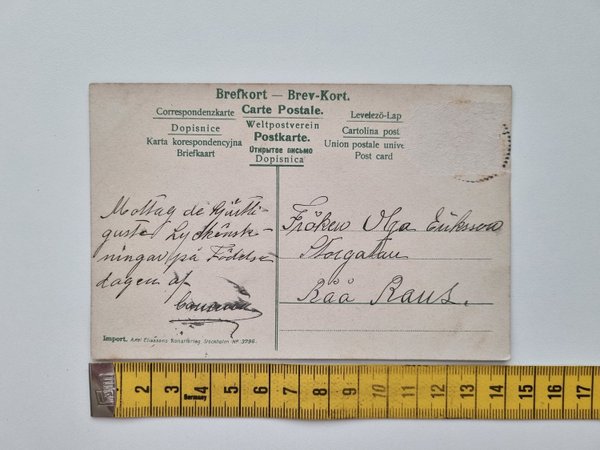 Brefkort — Brev-Kort.
Correspondenzkarte Carte Postale. Levelező-Lap
Dopisnice Weltpostverein Cartolina post
Karta korespondencyjna Postkarte. Union postale unive
Briefkaart Открытое письмо Post card
Dopisnica
Mottag de hjärtli-
gaste Lyckönsk-
ningar på Födelse
dagen af
Fröken Olga Eriksson
Storgatan
Råå Raus.
Import. Axel Eliassons Konstförlag Stockholm Nº 3796
2 3 4 5 6 7 8 9 10 11 12 13 14 15 16 17
Germany